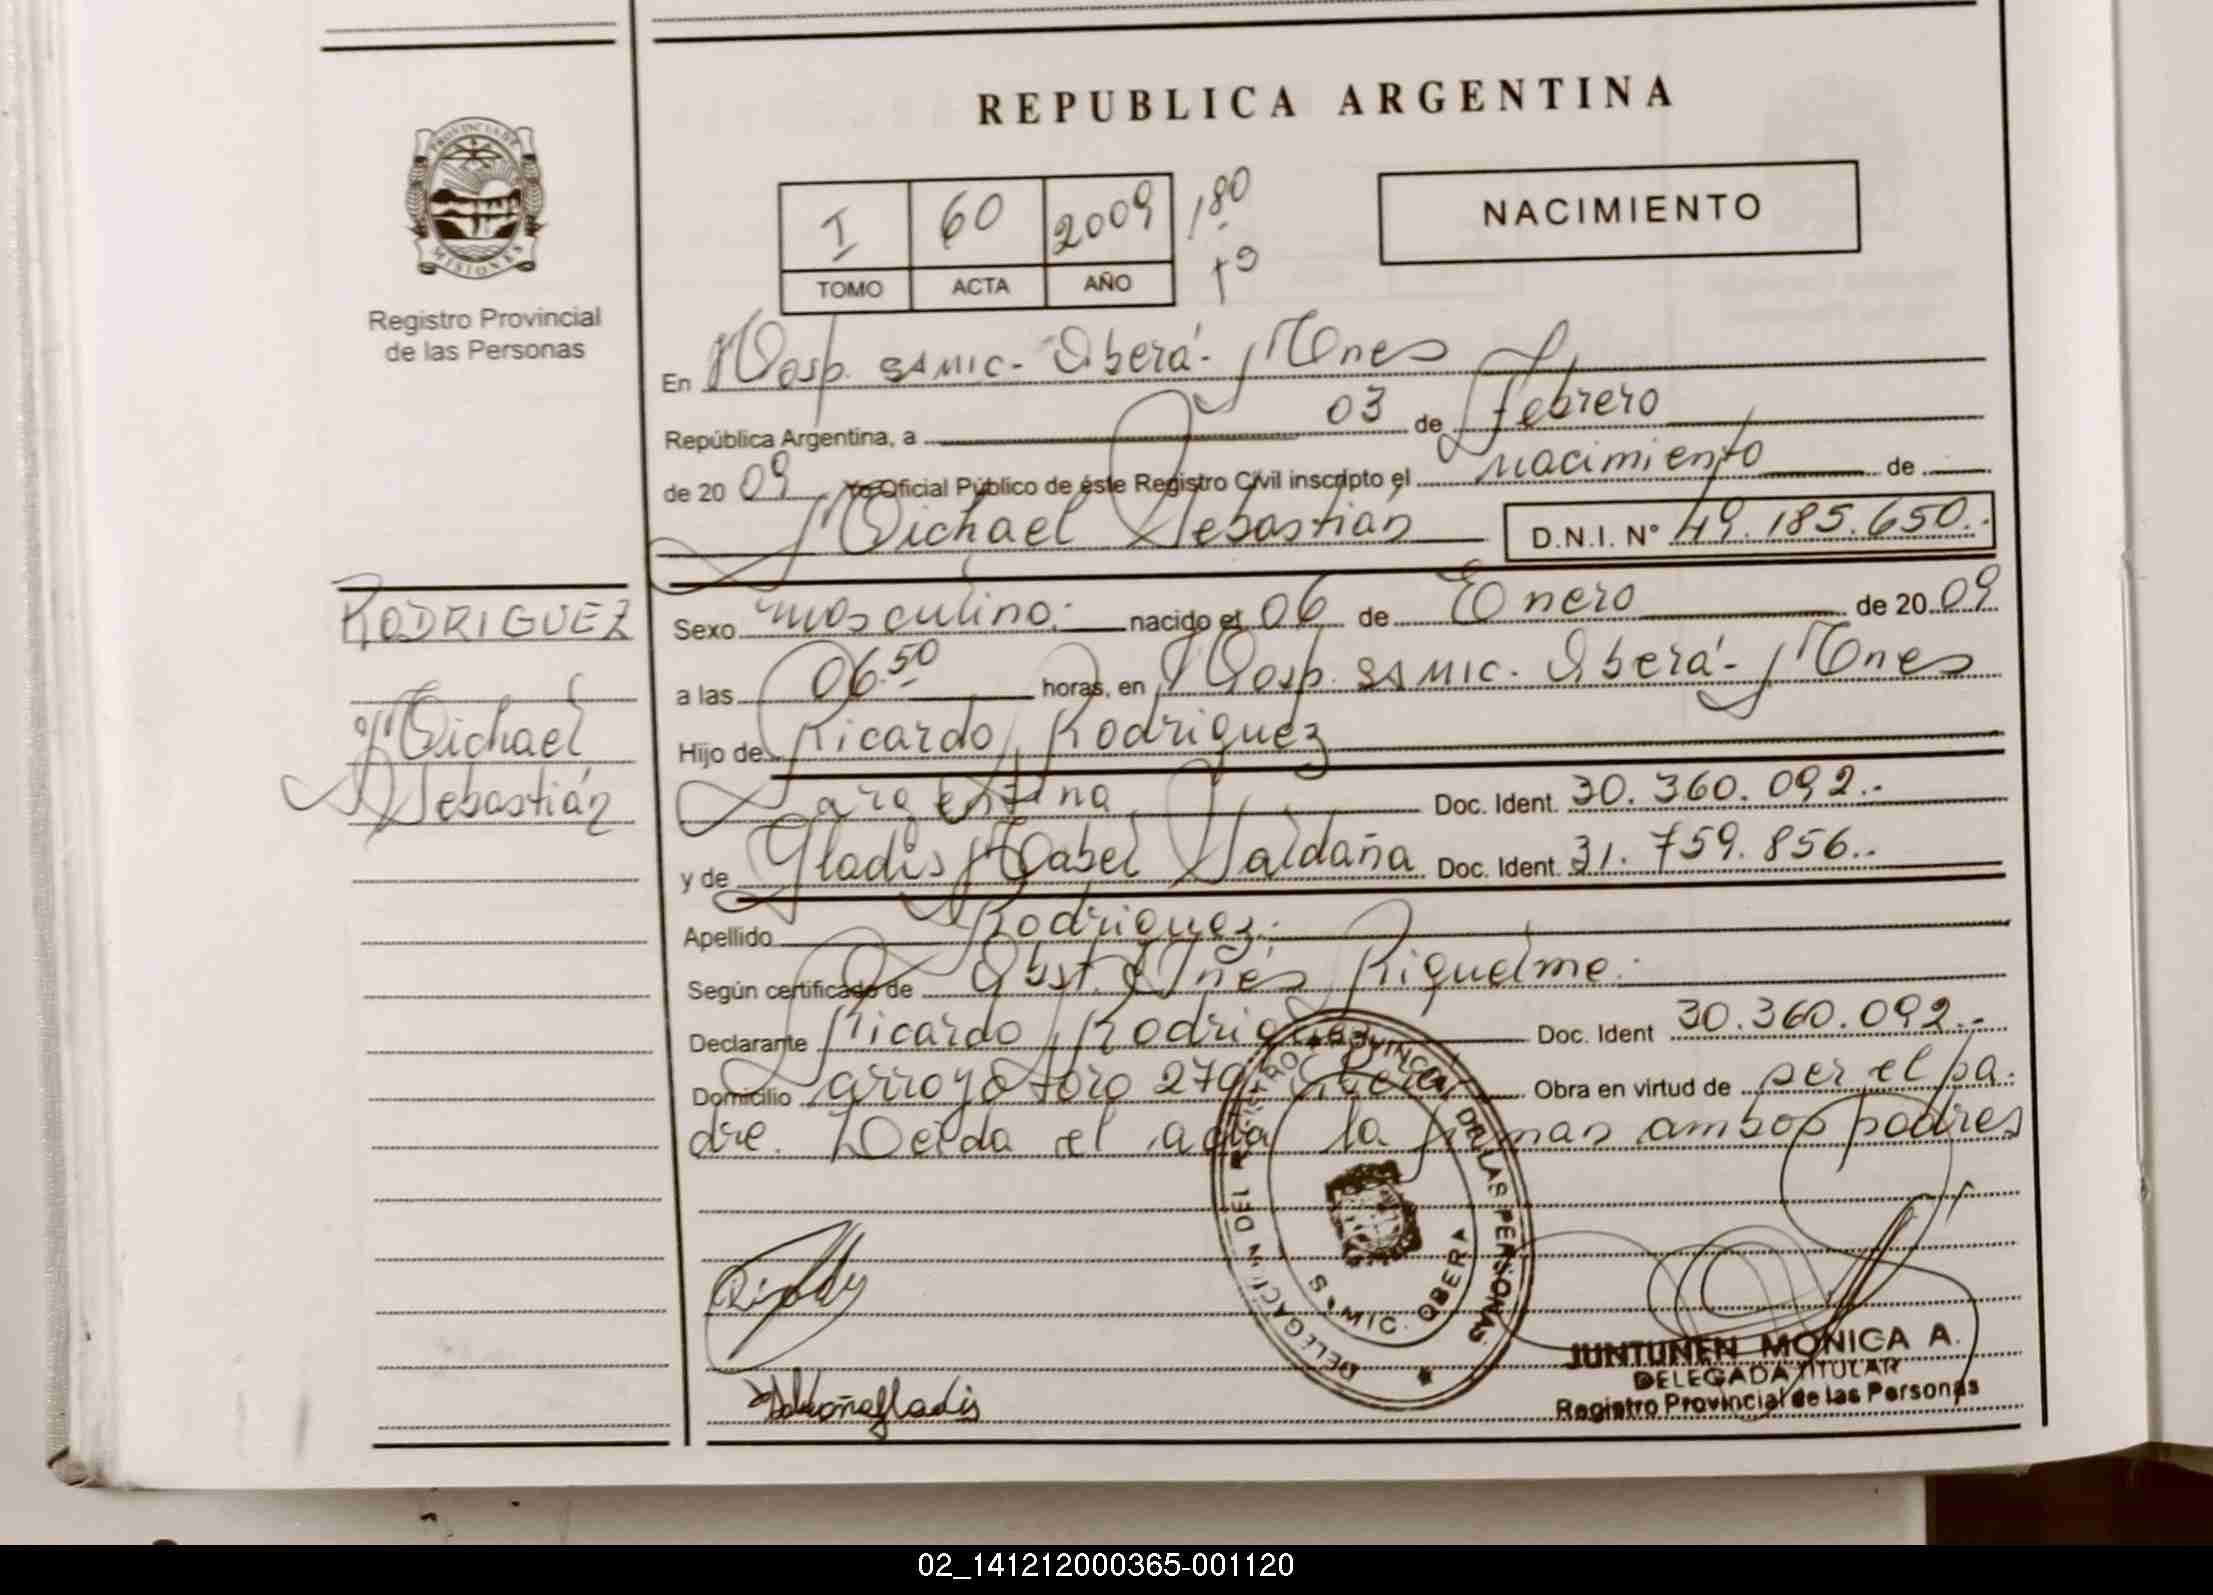 REPUBLICA ARGENTINA
PROVINCIA DE
MISIONES
Registro Provincial
de las Personas
I 60 2009 180
TOMO ACTA AÑO
NACIMIENTO
En Hosp. SAMIC - Oberá - Mnes
República Argentina, a 03 de Febrero
de 20 09 Yo Oficial Público de éste Registro Civil inscripto el nacimiento de
Michael Sebastián D.N.I. N° 49.185.650.-
RODRIGUEZ
Michael
Sebastián
Sexo masculino. nacido el 06 de Enero de 20 09
a las 06.50 horas, en Hosp. SAMIC. Oberá - Mnes
Hijo de Ricardo Rodriguez
argentina Doc. Ident. 30.360.092.-
y de Gladis Mabel Saldaña Doc. Ident. 31.759.856.-
Apellido Rodriguez.
Según certificado de Obst. Inés Riquelme.
Declarante Ricardo Rodriguez Doc. Ident 30.360.092.-
Domicilio arroyo toro 279 Oberá Obra en virtud de ser el pa-
dre. Leida el acta la firman ambos padres
DELEGACION DEL REGISTRO PROVINCIAL DE LAS PERSONAS
SAMIC. OBERA
Saldaña Gladis
JUNTUNEN MONICA A.
DELEGADA TITULAR
Registro Provincial de las Personas
02_141212000365-001120